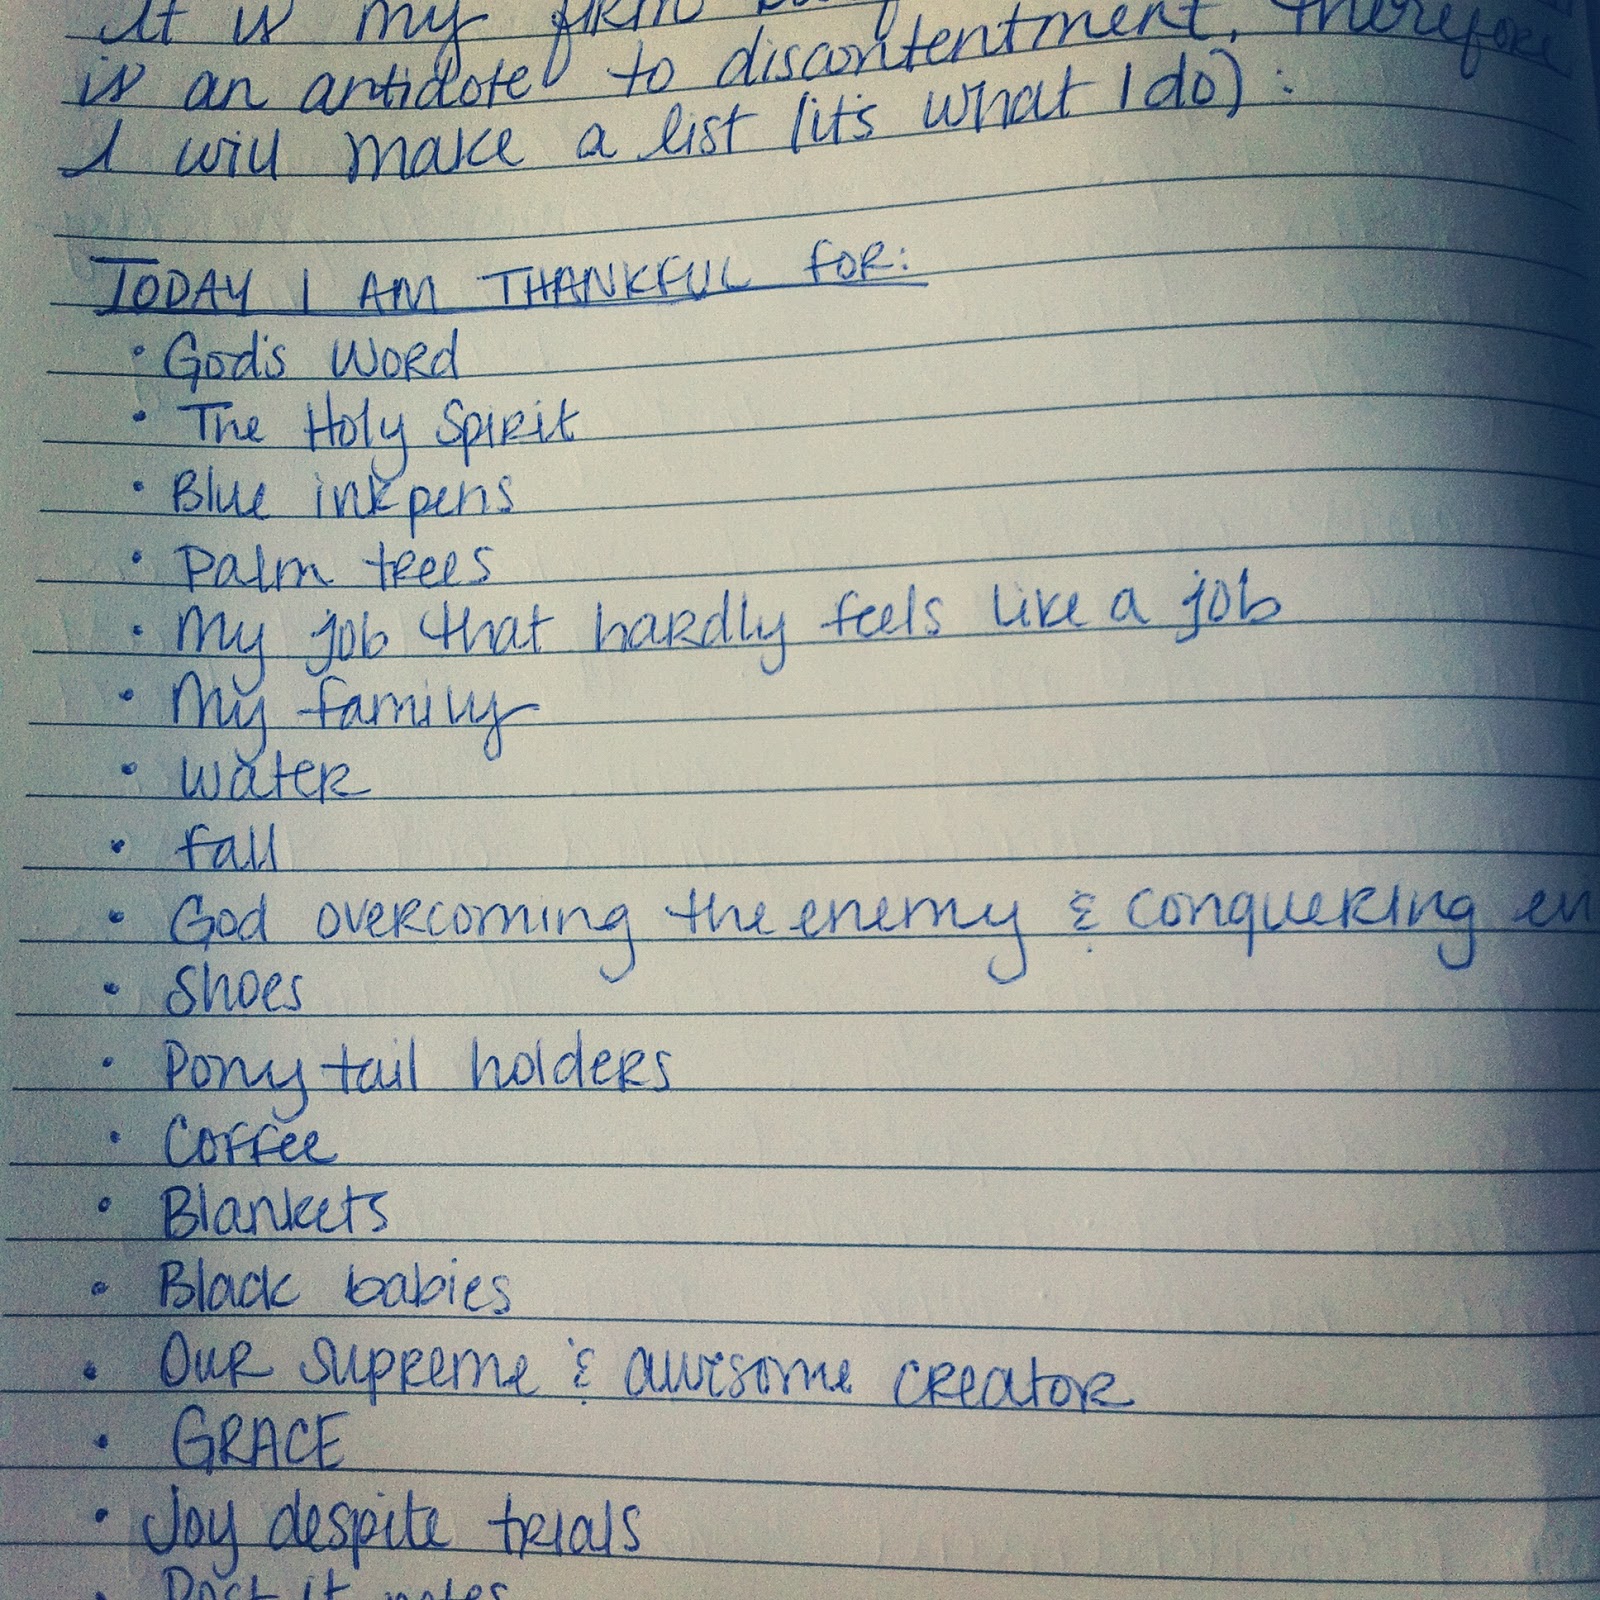 It is my firm
is an antidote to discontentment, therefore
I will make a list (it's what I do):
TODAY I AM THANKFUL FOR:
• God's Word
• The Holy Spirit
• Blue ink pens
• Palm trees
• My job that hardly feels like a job
• My family
• Water
• Fall
• God overcoming the enemy & conquering
• Shoes
• Pony tail holders
• Coffee
• Blankets
• Black babies
• Our supreme & awesome creator
• GRACE
• Joy despite trials
• Post it notes